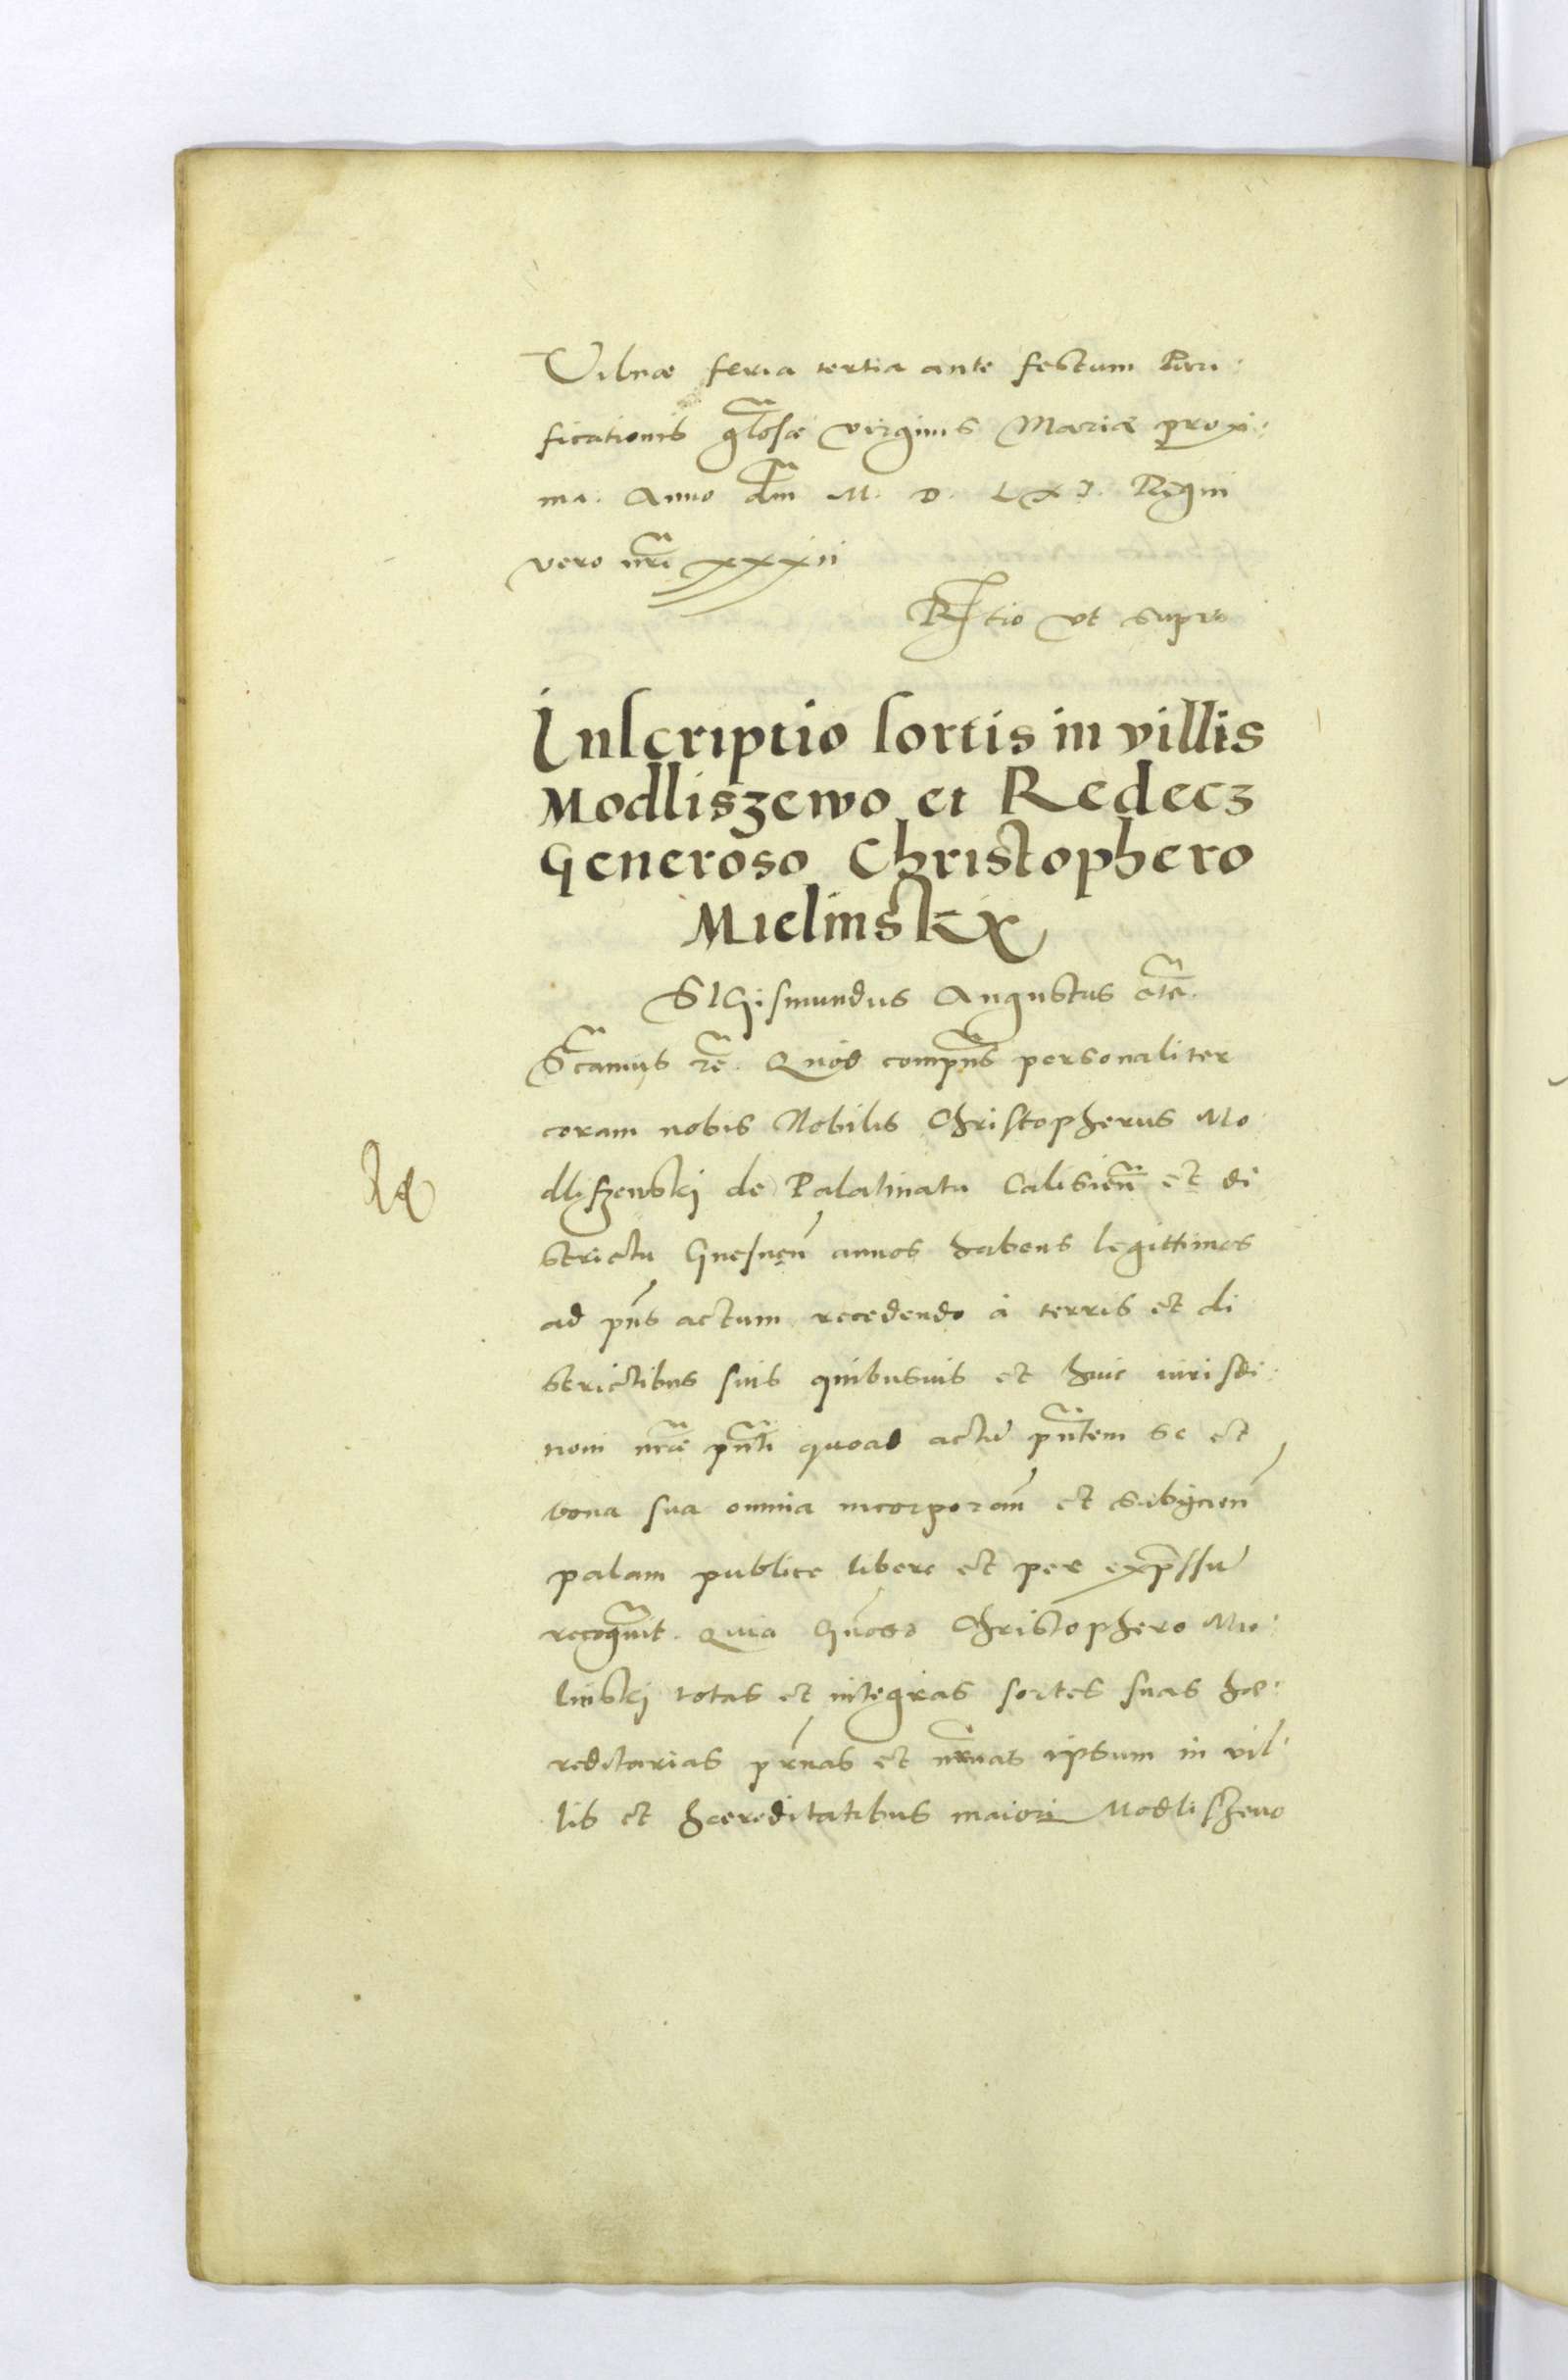 Vilnæ feria tertia ante festum Puri:
ficationis gl̃osæ virginis Mariæ proxi:
ma. Anno dñi M. D. LXI. Regni
vero nr̃i xxxii
R̃tio vt supra
Inscriptio sortis in villis
Modliszewo et Redecz
Generoso Christophero
Mielinsky
SIGismundus Augustus etc̃.
S̃camus etc̃. Quod comp̃ns personaliter
coram nobis Nobilis Christopherus Mo
dliszewskij de Palatinatu Calisień et di
strictu Gnesneñ annos habens legittimos
ad pñs actum recedendo à terris et di
strictibus suis quibusuis et huic iurisdi:
noni nr̃æ pñti quoad actũ pñtem se et
bona sua omnia incorporañ et subijcień
palam publice libere et per exp̃ssũ
recogñuit. Quia Gñoso Christophero Mie:
linskij totas et integras sortes suas hæ:
reditarias pr̃nas et mr̃nas ipsum in vil:
lis et hæreditatibus maiori Modliszewo